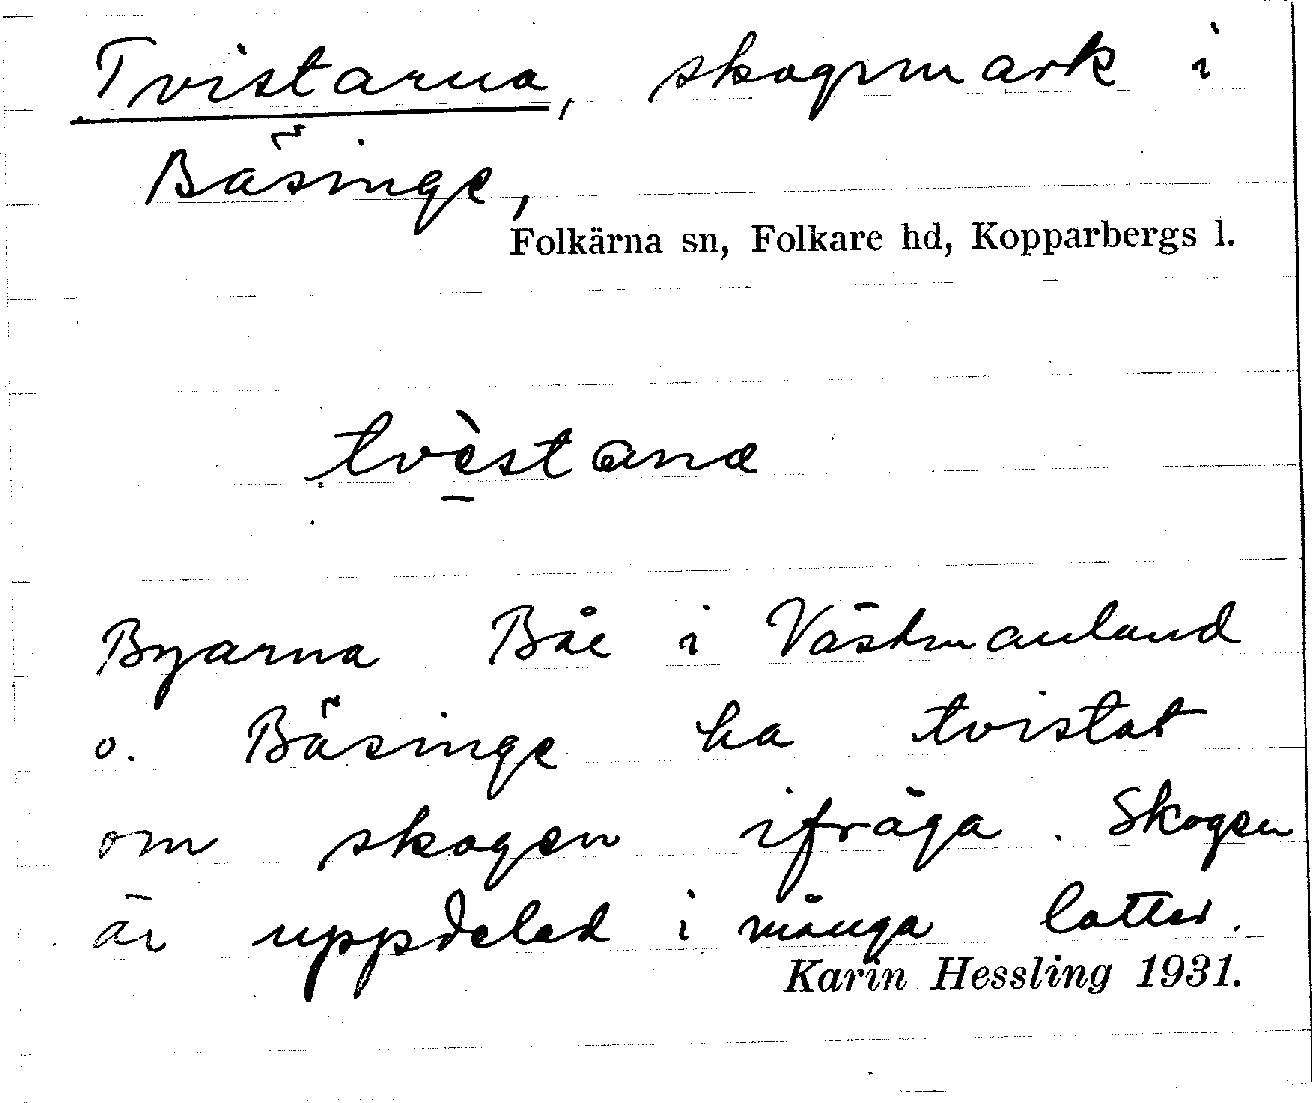 Tvistarna, skogsmark i
Bäsinge,
Folkärna sn, Folkare hd, Kopparbergs l.
tvèstana
Byarna Båe i Västmanland
o. Bäsinge ha tvistat
om skogen ifråga. Skogen
är uppdelad i många lotter.
Karin Hessling 1931.